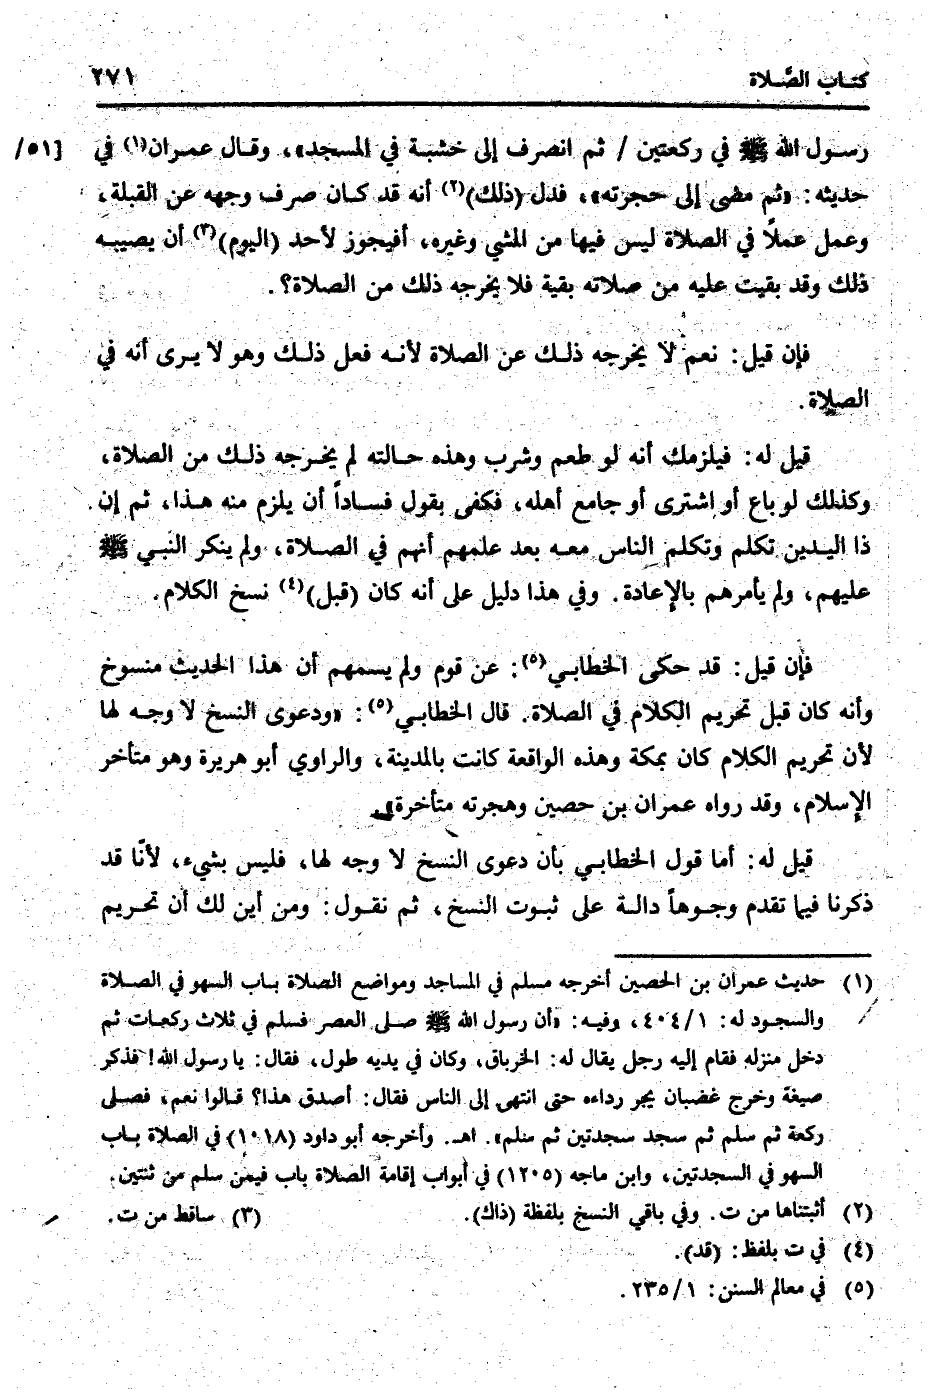 كتـاب الصَّـلاة ٢٧١
رسـول الله ﷺ في ركعتين / ثم انصرف إلى خشبـة في المسجد»، وقـال عمـران(١) في [٥١/
حديثه: «ثم مضى إلى حجرته»، فدل (ذلك)(٢) أنه قد كـان صرف وجهه عن القبلة،
وعمل عملًا في الصلاة ليس فيها من المشي وغيره، أفيجوز لأحد (اليوم)(٣) أن يصيبـه
ذلك وقد بقيت عليه من صلاته بقية فلا يخرجه ذلك من الصلاة؟.
فإن قيل: نعم لا يخرجه ذلـك عن الصلاة لأنـه فعل ذلـك وهو لا يـرى أنه في
الصلاة.
قيل له: فيلزمك أنه لو طعم وشرب وهذه حـالته لم يخـرجه ذلـك من الصلاة،
وكذلك لو باع أو اشترى أو جامع أهله، فكفى بقول فسـاداً أن يلزم منه هـذا، ثم إن
ذا اليـدين تكلم وتكلم الناس معـه بعد علمهم أنهم في الصـلاة، ولم ينكر النبـي ﷺ
عليهم، ولم يأمرهم بالإعادة. وفي هذا دليل على أنه كان (قبل)(٤) نسخ الكلام.
فإن قيل: قد حكى الخطابـي(٥): عن قوم ولم يسمهم أن هذا الحديث منسوخ
وأنه كان قبل تحريم الكلام في الصلاة. قال الخطابـي(٥): «ودعوى النسخ لا وجـه لها
لأن تحريم الكلام كان بمكة وهذه الواقعة كانت بالمدينة، والراوي أبو هريرة وهو متأخر
الإسلام، وقد رواه عمران بن حصين وهجرته متأخرة».
قيل له: أما قول الخطابـي بأن دعوى النسخ لا وجه لها، فليس بشيء، لأنّا قد
ذكرنا فيما تقدم وجـوهاً دالـة على ثبـوت النسخ، ثم نقـول: ومن أين لك أن تحـريم
(١) حديث عمران بن الحصين أخرجه مسلم في المساجد ومواضع الصلاة بـاب السهو في الصـلاة
والسجـود له: ٤٠٤/١، وفيـه: «أن رسول الله ﷺ صـلى العصر فسلم في ثلاث ركعـات ثم
دخل منزله فقام إليه رجل يقال له: الخرباق، وكان في يديه طول، فقال: يا رسول الله! فذكر
صيغة وخرج غضبان يجر رداءه حتى انتهى إلى الناس فقال: أصدق هذا؟ قـالوا نعم، فصـلى
ركعة ثم سلم ثم سجد سجدتين ثم سلم». اهـ. وأخرجه أبو داود (١٠١٨) في الصلاة بـاب
السهو في السجدتين، وابن ماجه (١٢٠٥) في أبواب إقامة الصلاة باب فيمن سلم من ثنتين.
(٢) أثبتناها من ت. وفي باقي النسخ بلفظة (ذاك). (٣) ساقط من ت.
(٤) في ت بلفظ: (قد).
(٥) في معالم السنن: ٢٣٥/١.